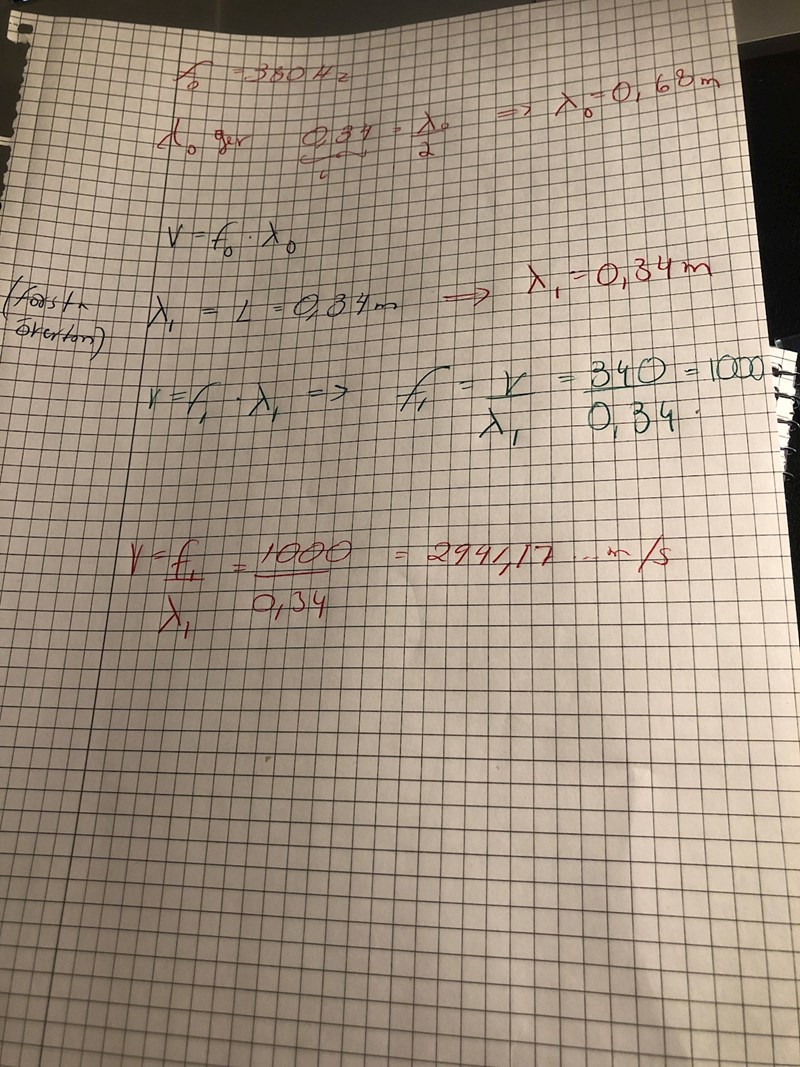 f₀ = 380 Hz
λ₀ ger 0,34 = λ₀/2 => λ₀ = 0,68 m
L
V = f₀ · λ₀
(Första överton) λ₁ = L = 0,34 m => λ₁ = 0,34 m
V = f₁ · λ₁ => f₁ = V/λ₁ = 340/0,34 = 1000
V = f₁/λ₁ = 1000/0,34 = 2941,17... m/s